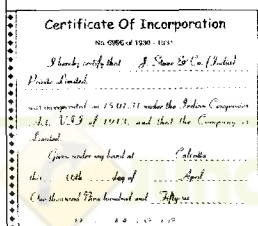 Certificate Of Incorporation
No. 6996 of 1930 - 1931
I hereby certify that J. Stone & Co. (India)
Private Limited
was incorporated on 15.01.31 under the Indian Companies
Act, VII of 1913, and that the Company is
Limited.
Given under my hand at Calcutta
this day of April
One thousand Nine hundred and Fifty six